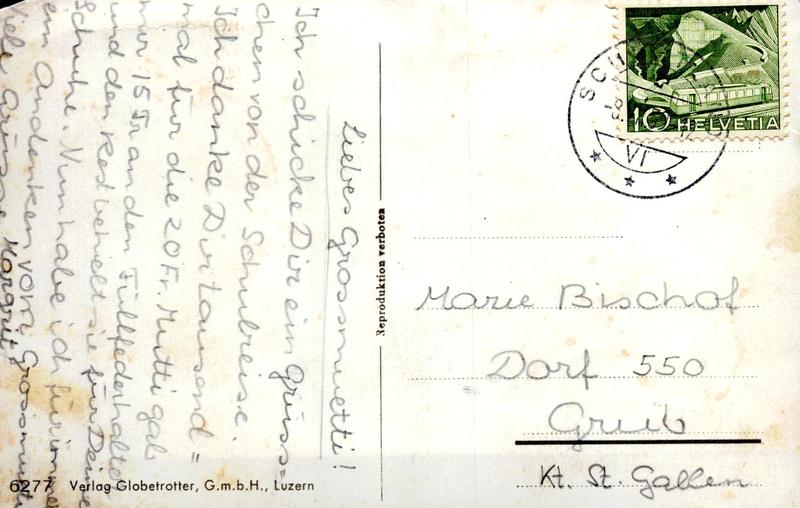 Liebes Grossmuetti!
Ich schicke Dir ein Grüss-
chen von der Schulreise.
Ich danke Dir tausend=
mal für die 20 Fr. Mutti gab
mir 15 Fr an den Füllfederhalte
und den Rest behielt sie für Deine
Schuhe. Nun habe ich für imme
ein Andenken vom Grossmutti
iele Grüsse Margrit
6277 Verlag Globetrotter, G.m.b.H., Luzern
Reproduktion verboten
10 HELVETIA
SCH
VI
Marie Bischof
Dorf 550
Grub
Kt. St. Gallen